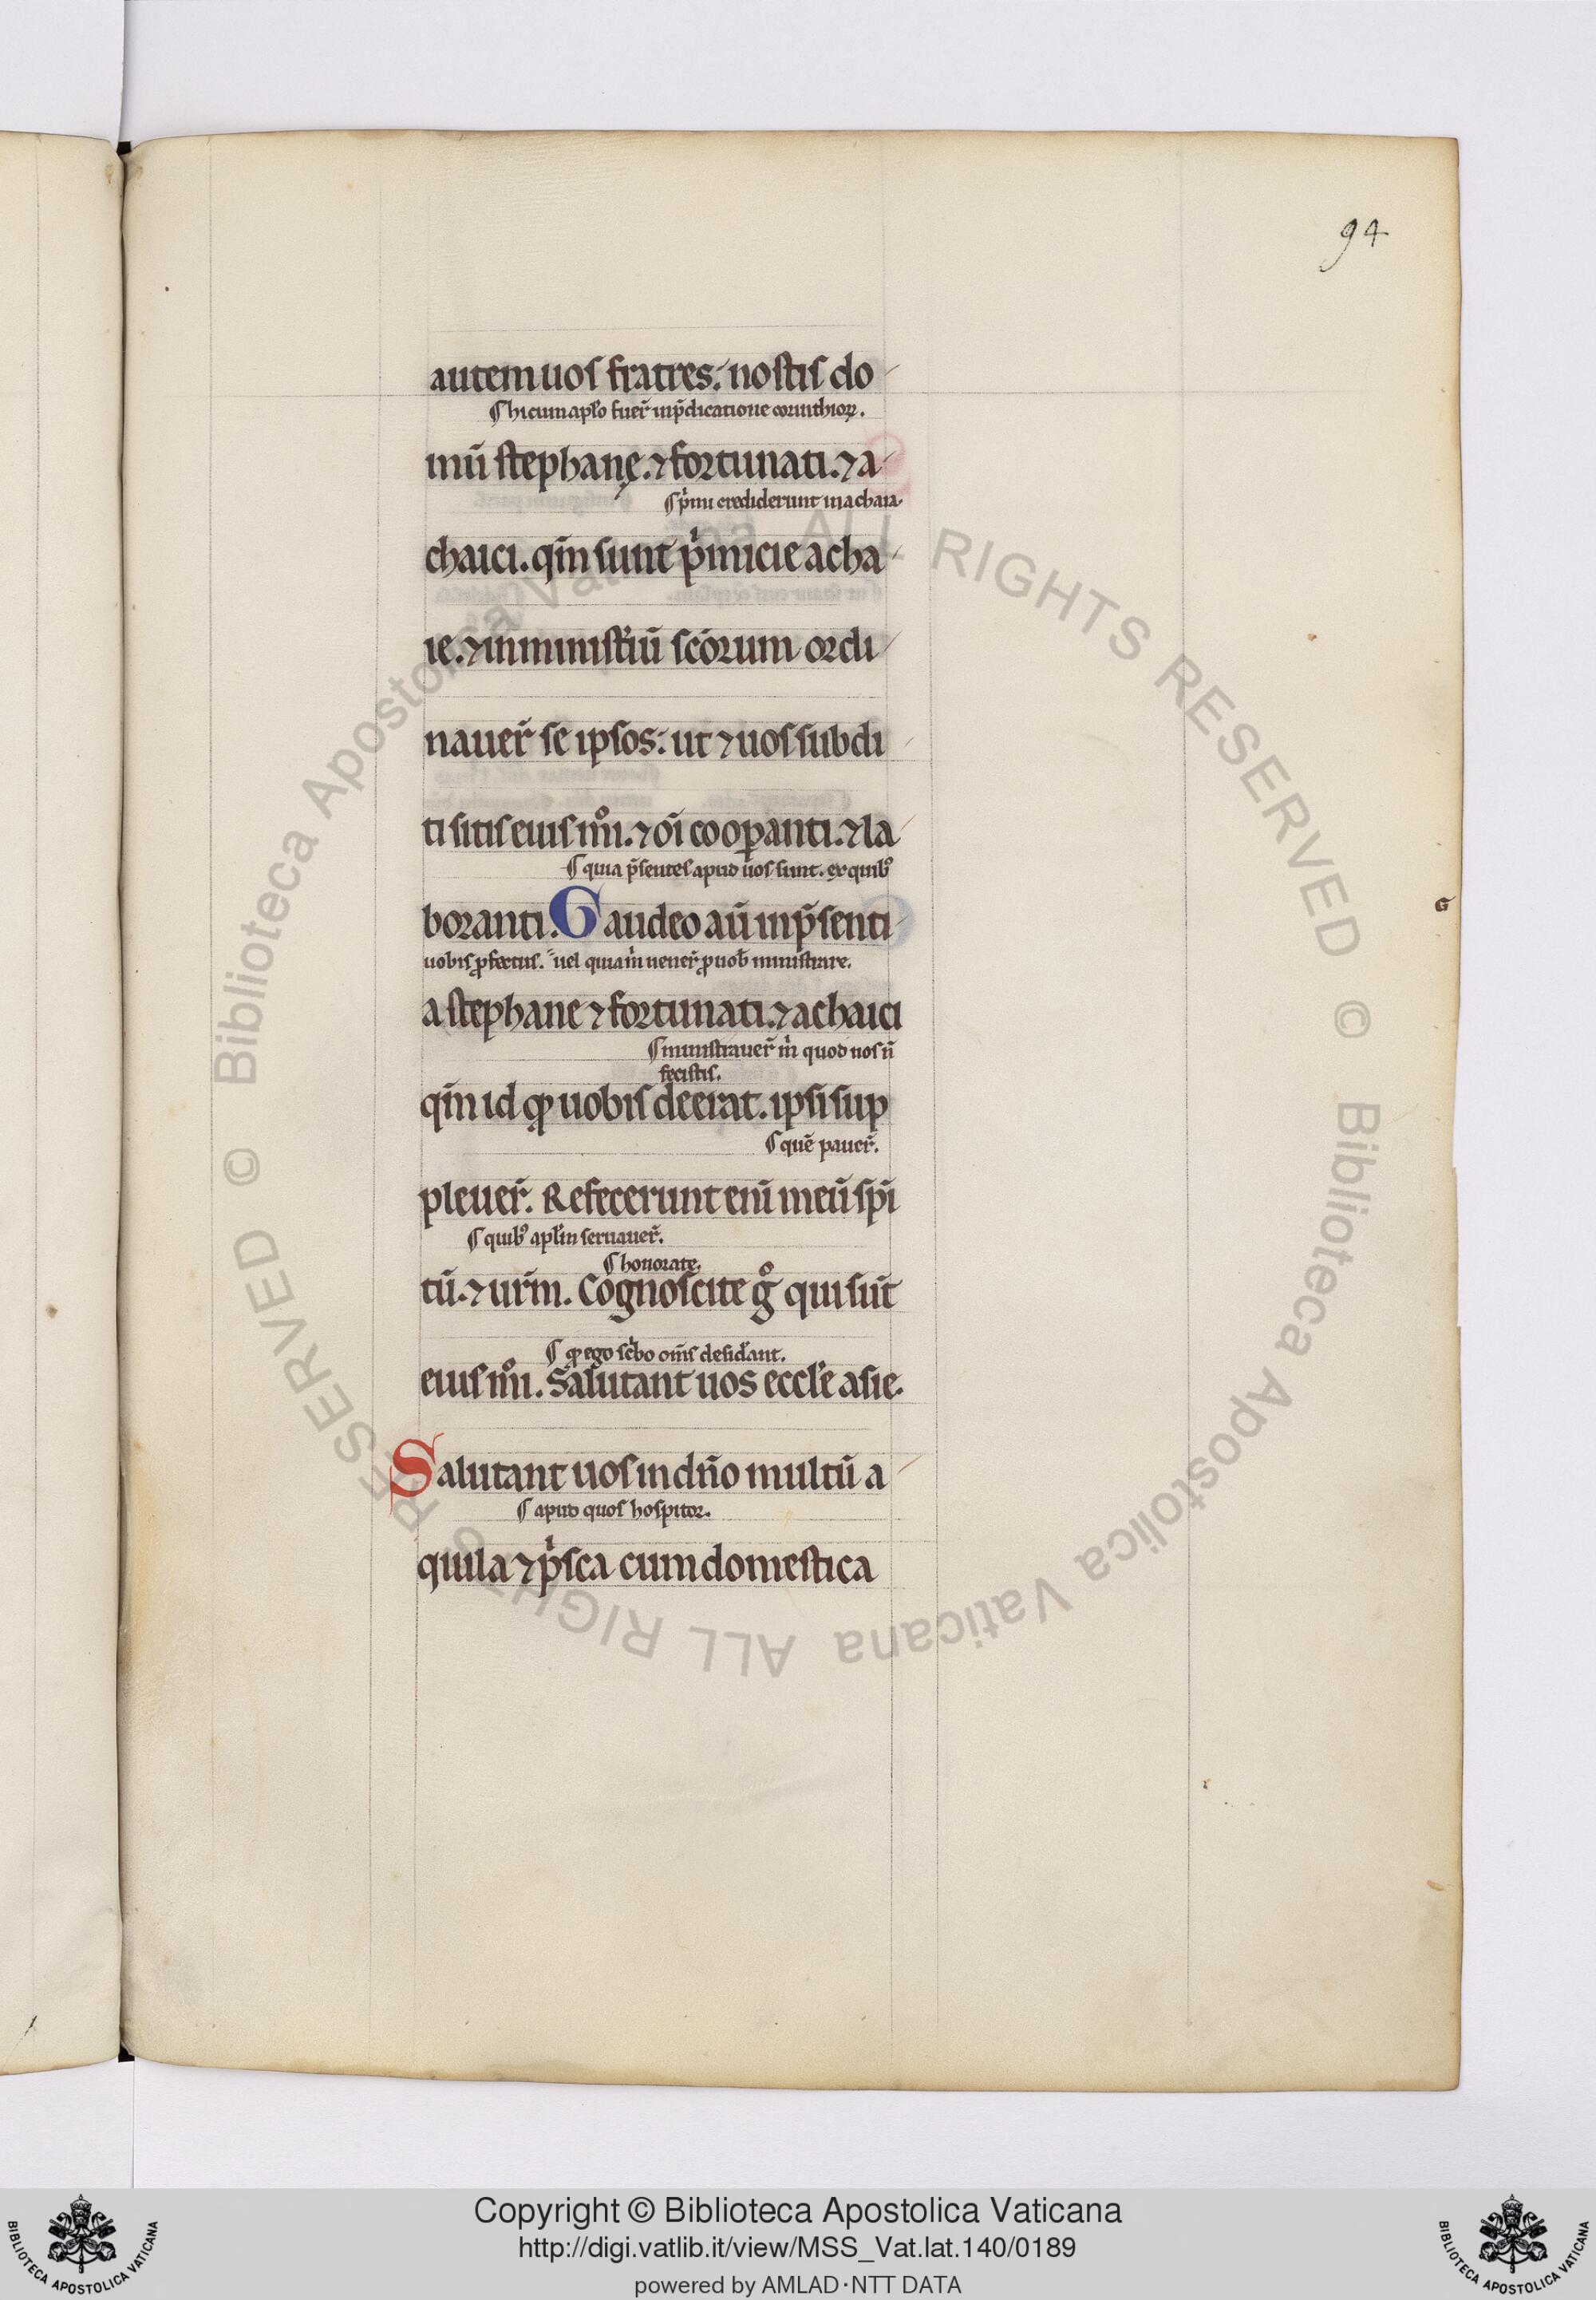 94
autem uos fratres. nostis do
¶ hi cum apl̅o fuer̅ in p̅dicatione corinthioꝝ.
mū stephanę. ⁊ fortunati. ⁊ a
¶ pͥmi crediderunt in achaia.
chaici. qm̅ sunt pͥmicie acha
ie. ⁊ in ministͥiū scōrum ordi
nauer̅ se ipsos. ut ⁊ uos subdi
ti sitis eiusmͦi. ⁊ oi̅ cooꝑanti. ⁊ la
¶ quia p̅sentes apud uos sunt. ex quibꝰ
boranti. Gaudeo aū in p̅senti
uobis ꝓfectus. uel quia mͥ uener̅ ꝓ uob̅ ministrare.
a stephane ⁊ fortunati. ⁊ achaici
¶ ministrauer̅ mͥ quod uos n̅
fecistis.
qm̅ id qđ uobis deerat. ipsi sup
¶ quē pauer̅.
pleuer̅. Refecerunt eni̅ meū sp̅i
¶ quibꝰ apl̅m seruauer̅.
¶ honorate.
tū. ⁊ ur̅m. Cognoscite gͦ qui sūt
¶ qđ ego scͥbo om̅s desid̅ant.
eiusmͦi. Salutant uos eccl̅e asie.
Salutant uos in dn̅o multū a
¶ apud quos hospitor.
quila ⁊ pͥsca cum domestica
G
© Biblioteca Apostolica Vaticana ALL RIGHTS RESERVED © Biblioteca Apostolica Vaticana ALL RIGHTS RESERVED
Copyright © Biblioteca Apostolica Vaticana
http://digi.vatlib.it/view/MSS_Vat.lat.140/0189
powered by AMLAD·NTT DATA
BIBLIOTECA APOSTOLICA VATICANA
BIBLIOTECA APOSTOLICA VATICANA